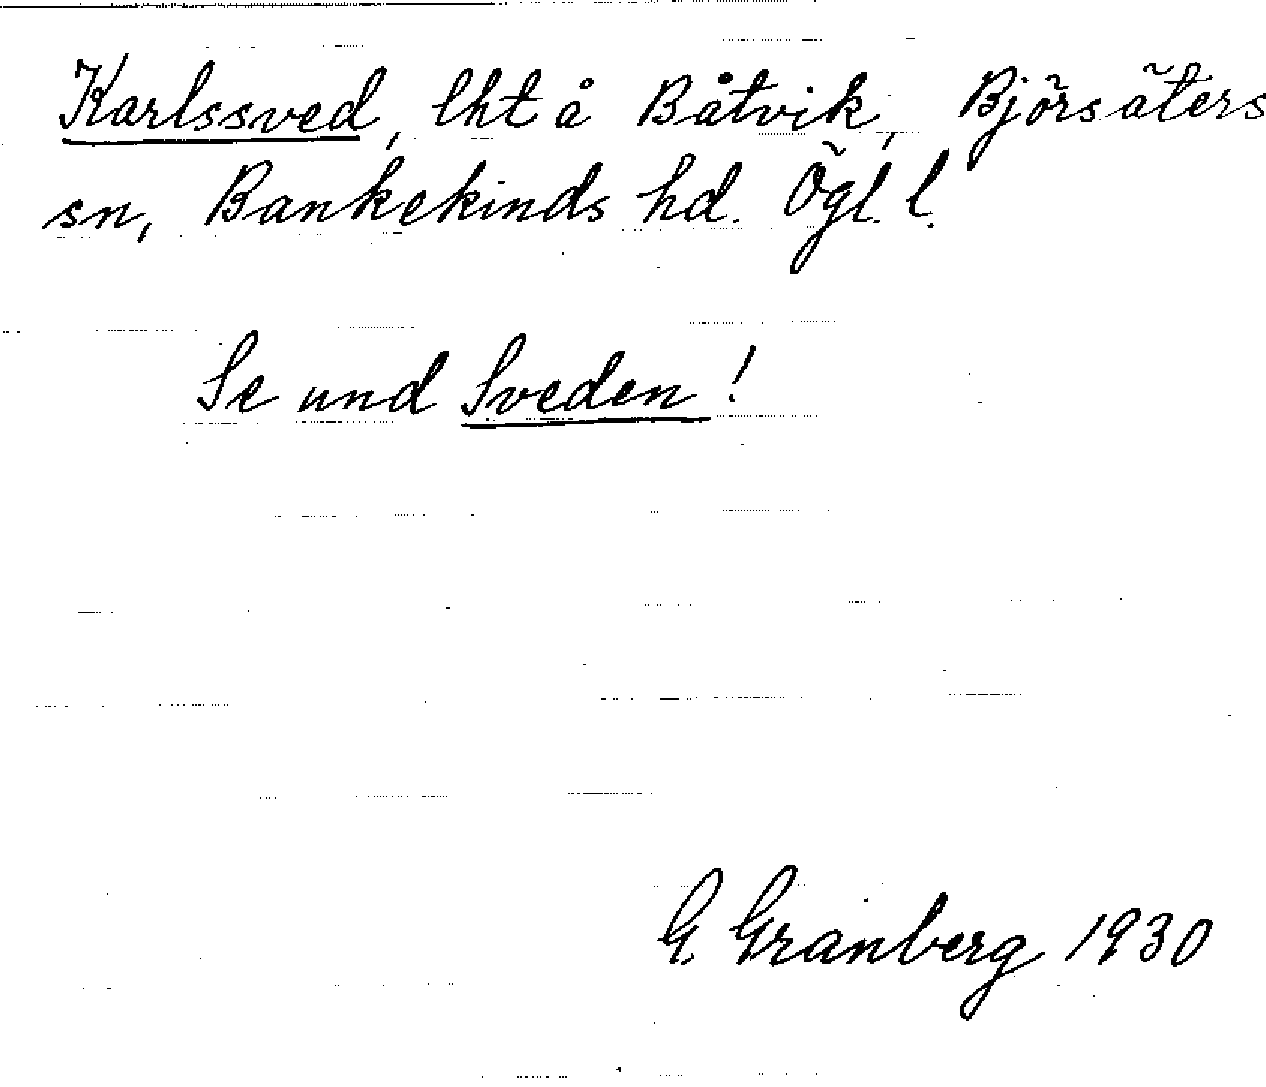 Karlssved, lht å Båtvik, Björsäters
sn, Bankekinds hd. Ögl. l.
Se und Sveden!
G. Granberg 1930